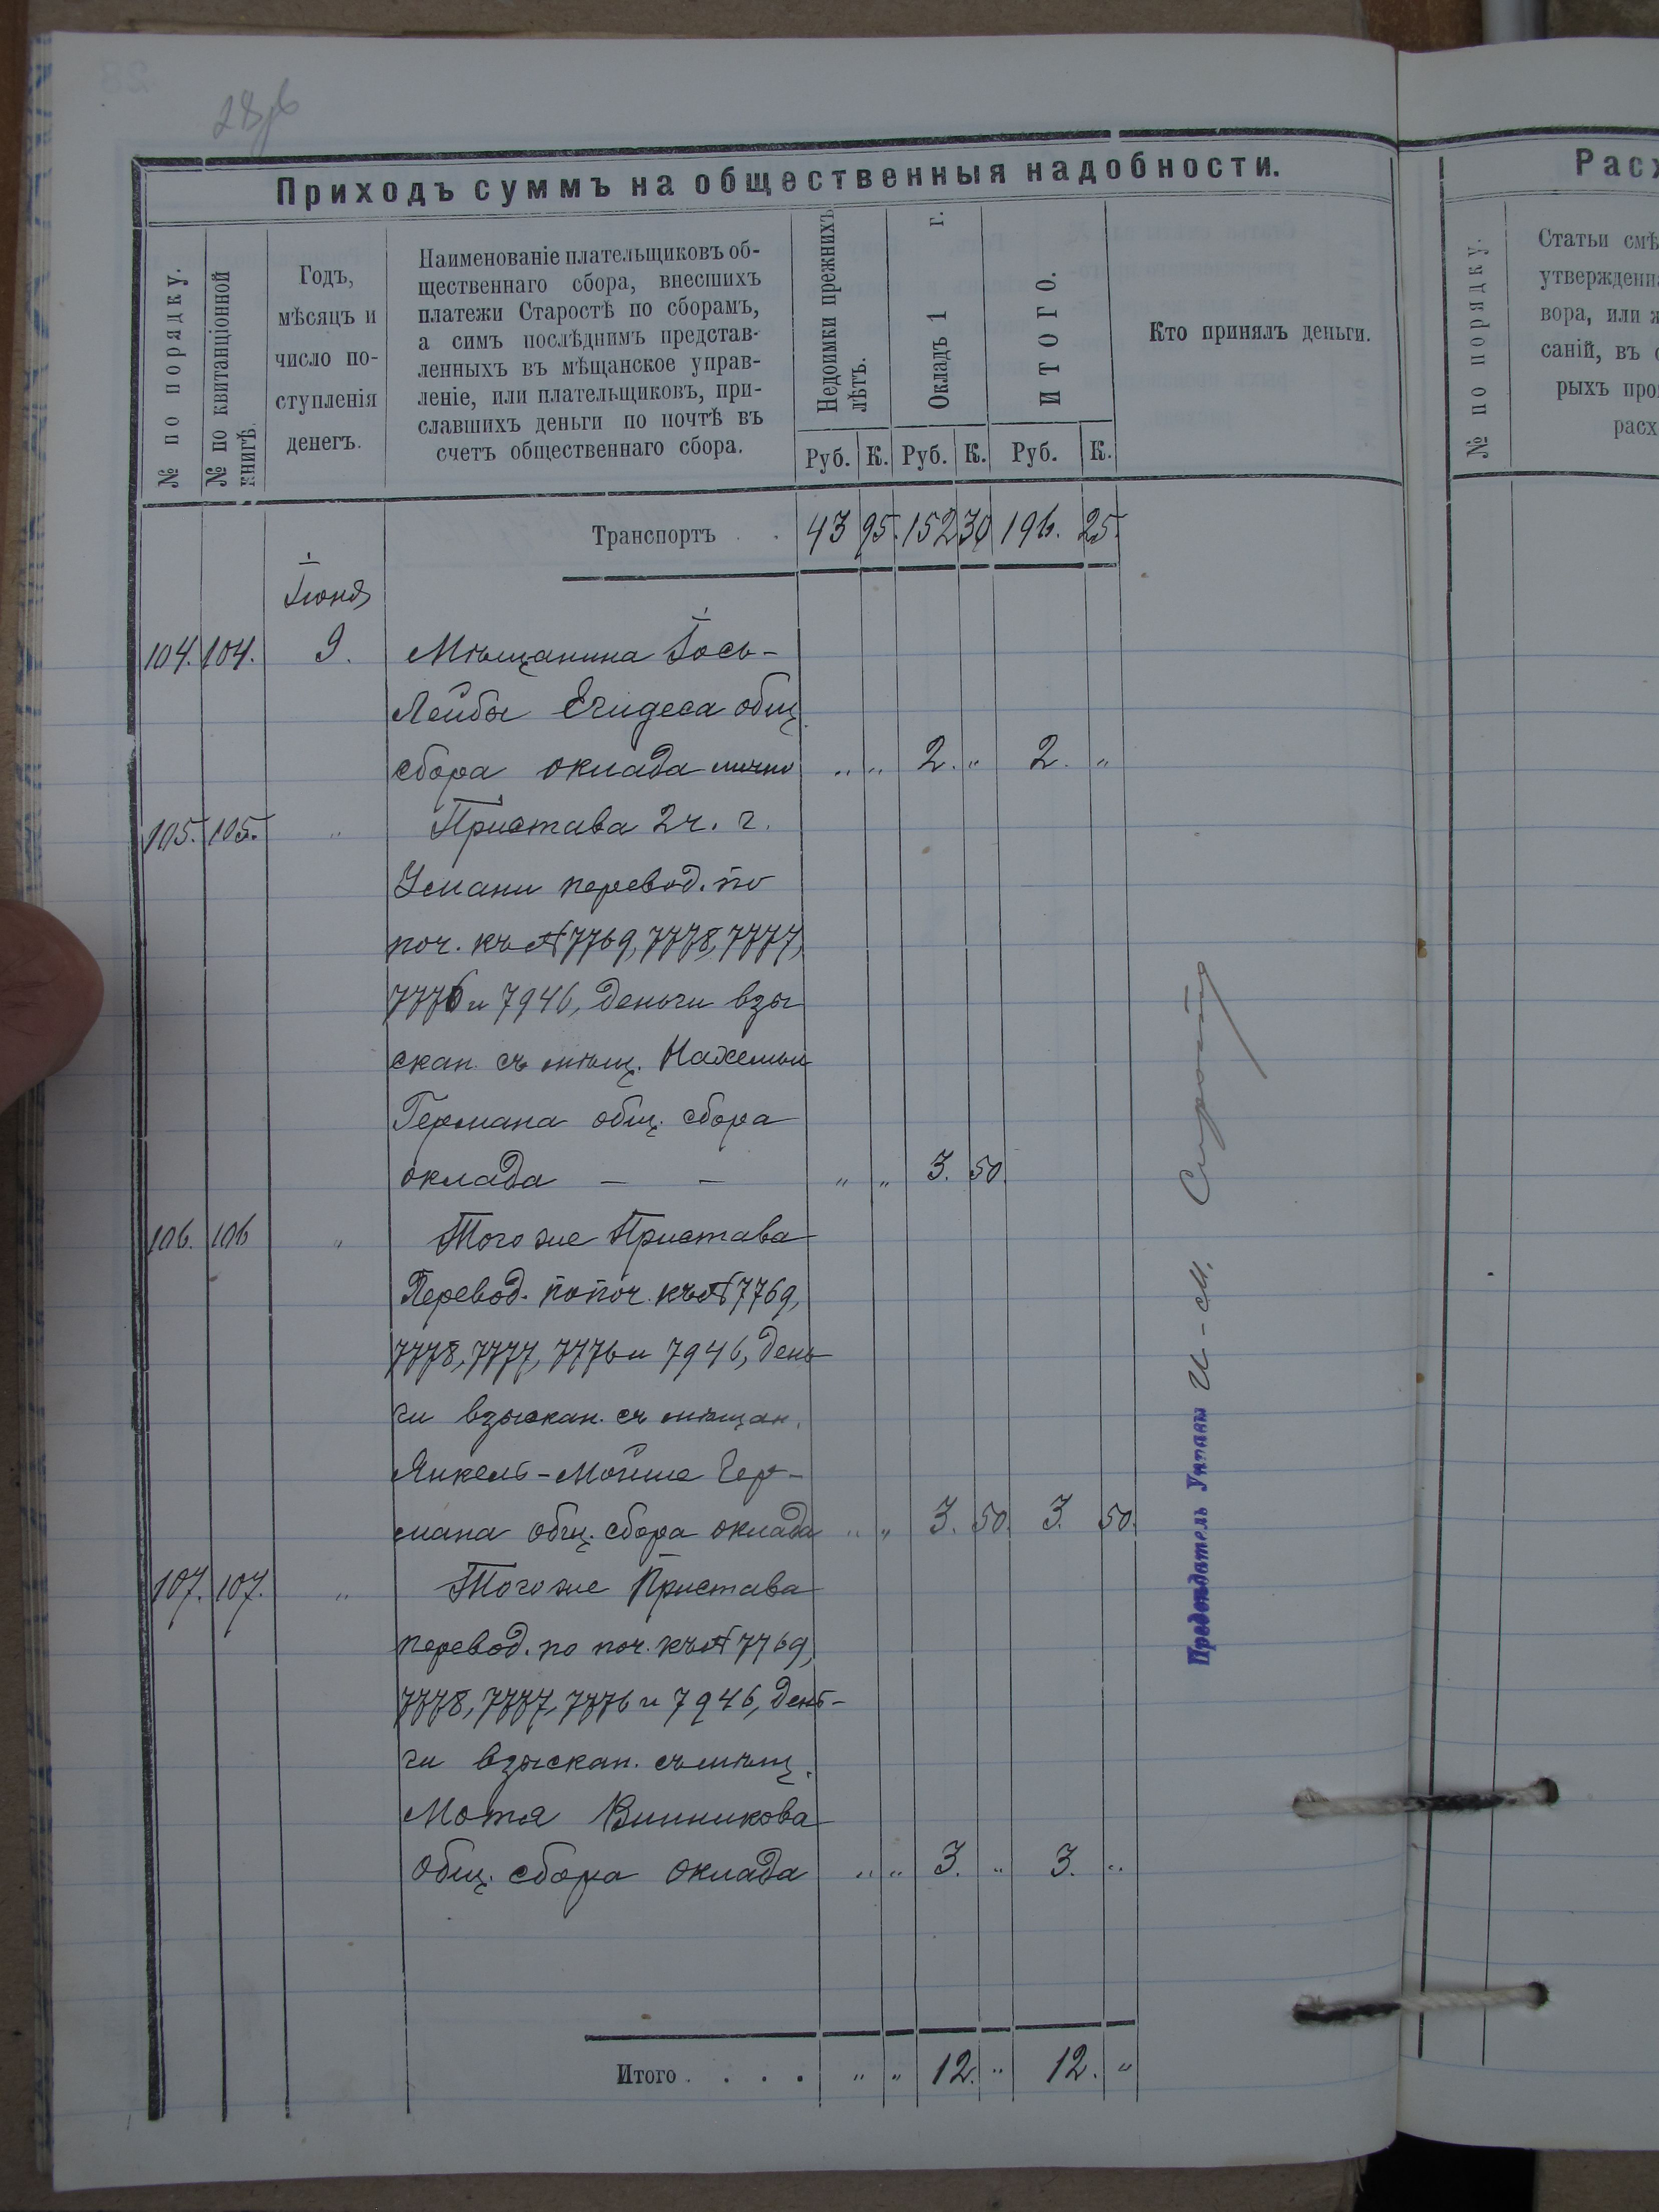 28об
Приходъ суммъ на общественныя надобности.
№ по порядку.
№ по квитанціонной книгѣ.
Годъ,
мѣсяцъ и
число по-
ступленія
денегъ.
Наименованіе плательщиковъ об-
щественнаго сбора, внесшихъ
платежи Старостѣ по сборамъ,
а симъ послѣднимъ представ-
ленныхъ въ мѣщанское управ-
леніе, или плательщиковъ, при-
славшихъ деньги по почтѣ въ
счетъ общественнаго сбора.
Недоимки прежнихъ лѣтъ.
Окладъ 1 г.
ИТОГО.
Кто принялъ деньги.
Руб. К. Руб. К. Руб. К.
Транспортъ . . 43 95. 152 30 196. 25.
Іюня
104. 104. 9. Мѣщанина Іось-
Лейбы общ.
сбора оклада лично „ „ 2. „ 2. „
105. 105. „ Пристава 2 ч. г.
Умани перевод. по
поч. къ № 7769, 7778, 7777,
7776 и 7946, деньги взы
скан. съ мѣщ.
Германа общ. сбора
оклада — — „ „ 3. 50.
106. 106 „ Того же Пристава
Перевод. по поч. къ № 7769,
7778, 7777, 7776 и 7946, день
ги взыскан. съ мѣщан.
Янкель-Мойше Гер-
мана общ. сбора оклада „ „ 3. 50. 3. 50.
107. 107. „ Того же Пристава
перевод. по поч. къ № 7769,
7778, 7777, 7776 и 7946, день-
ги взыскан. съ мѣщ.
Мотя Винникова
общ. сбора оклада „ „ 3. „ 3. „
Итого . . . . „ „ 12. „ 12. „
Предсѣдатель Управы И-М.
Расх
№ по порядку.
Статьи смѣ
утвержденн
вора, или ж
саній, въ с
рыхъ про
расх